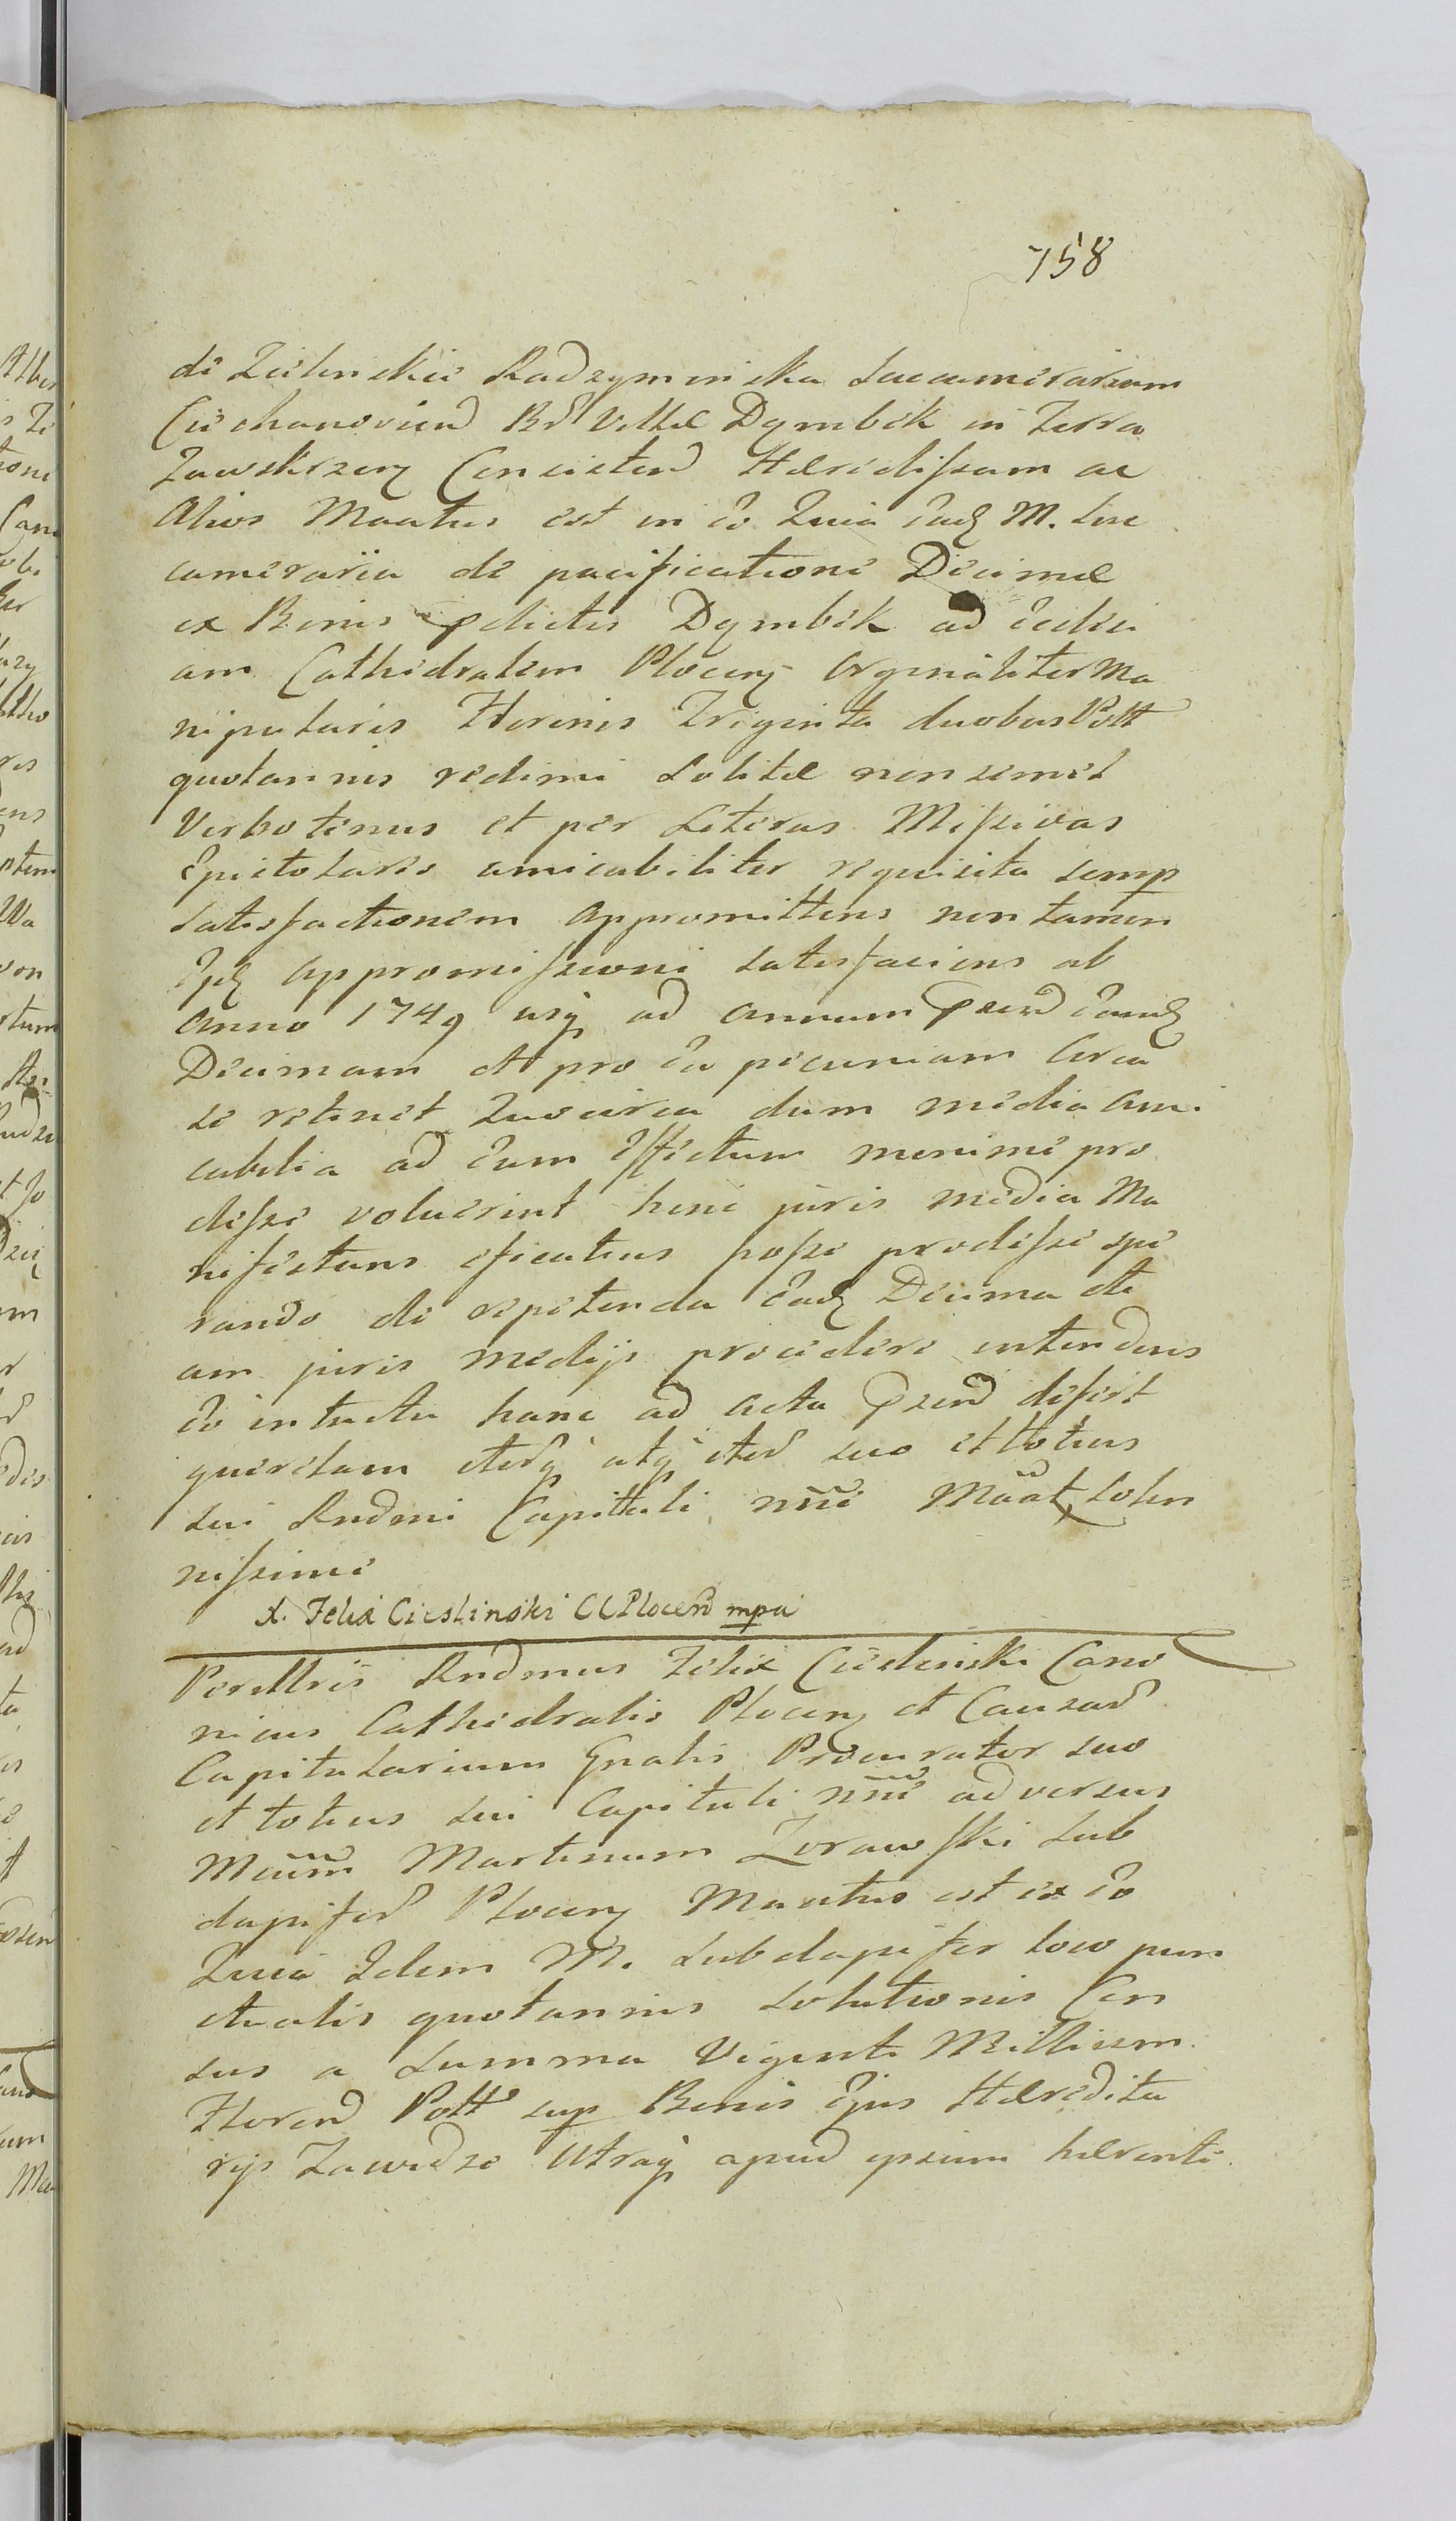 758
de Zielinskie Radzyminska Succamerariam
Ciechanovien Br Villae Dymbek in Terra
Zawskrzen Consisten Haeredissam ac
Alios Maatus est in eo Quia ead M. Suc
cameraria de pacificatione Decimae
ex Bonis pdictis Dymbek ad Eccles
am Cathedralem Plocen Orginaliter Ma
nipularis Florenis Triginta duobus Poll
quotannis redimi Solitae non semel
Verbotenus et per Literas Missivas
Epistolares amicabiliter requisita semp
Satisfactionem appromittens non tamen
Ipi appromissioni satisfaciens ab
Anno 1749 usq ad annum psen eand
Decimam et pro ea pecuniam Circa
se retinet Quocirca dum media ami
cabilia ad eum Effectum minime pro
desse voluerint hinc juris media Ma
nifestans eficatius posse prodesse spe
rando de repetenda ead Decima eti
am juris medijs procedere intendens
eo intuitu hanc ad acta psen defert
querelam iterq atq iter suo et totius
sui Rndmi Capituli nne Maat Solen
nissime
X. Felix Cieslinski CC Plocen mpa
Perillris Rndmus Felix Cieslinski Cano
nicus Cathedralis Plocen et Causar
Capitularium Gnalis Procurator suo
et totius sui Capituli nne adversus
Mcum Martinum Zorawski Sub
dapifer Plocen Maatus est ex eo
Quia Idem M. Subdapifer loco pun
ctualis quotannis solutionis Cen
sus a Summa Viginti Millium
Floren Poll sup Bonis Ejus Haeredita
rijs Zawadze Utraq apud ipsum haerenti